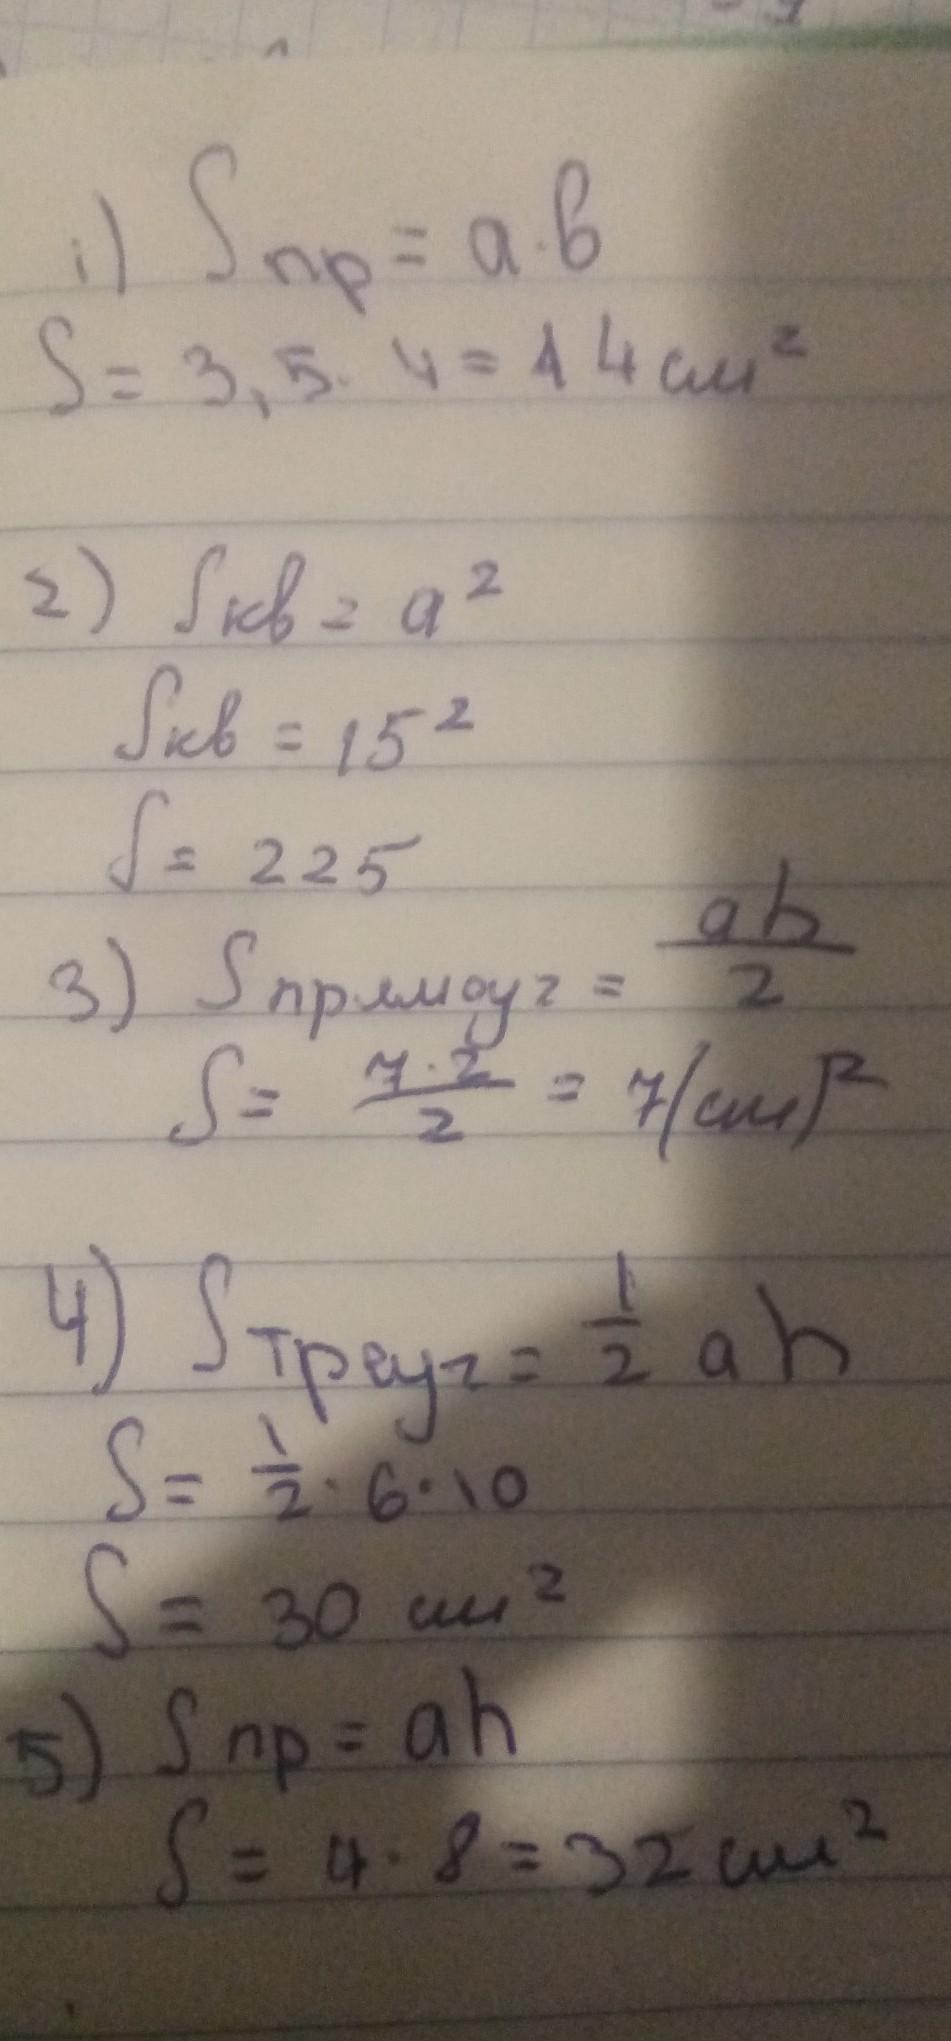 1) Sпр = a·b
S = 3,5·4 = 14 см²
2) Sкв = a²
Sкв = 15²
S = 225
3) Sпрямоуг = ah/2
S = 7·2/2 = 7(см)²
4) Sтреуг = 1/2 ah
S = 1/2·6·10
S = 30 см²
5) Sпр = ah
S = 4·8 = 32 см²